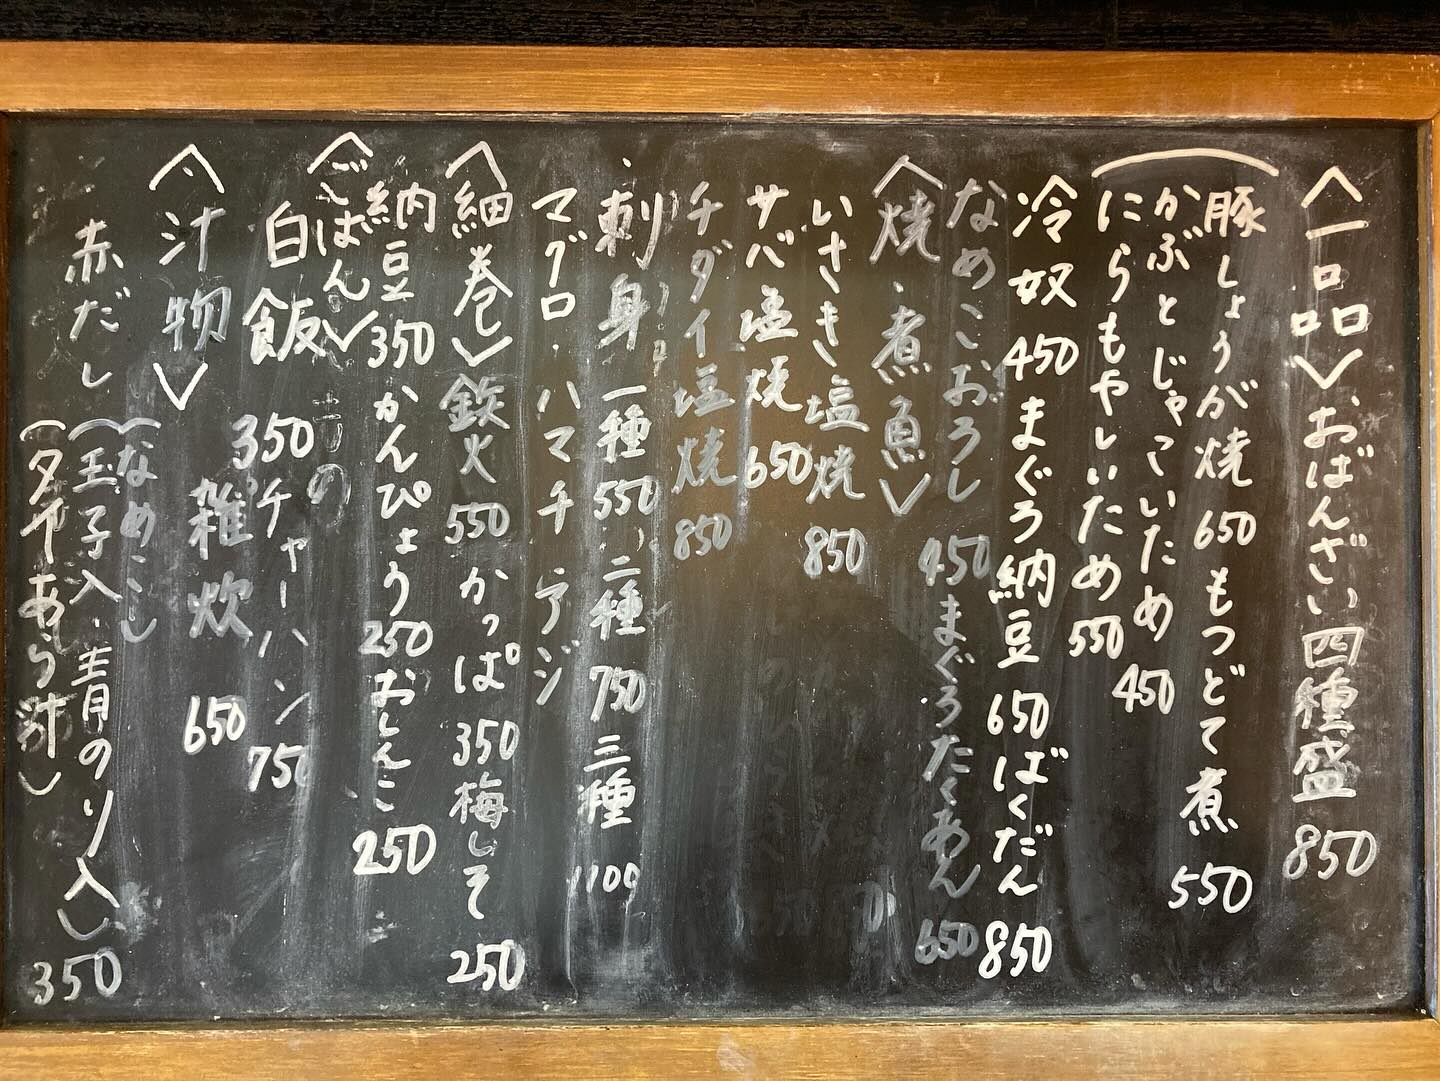 〈一品〉おばんざい四種盛 850
豚しょうが焼 650 もつどて煮 550
かぶとじゃこいため 450
にらもやしいため 550
冷奴 450 まぐろ納豆 650 ばくだん 850
なめこおろし 450 まぐろたくあん 650
〈焼・煮魚〉
いさき塩焼 850
サバ塩焼 650
チダイ塩焼 850
・刺身 一種 550 二種 750 三種 1100
マグロ・ハマチ・アジ
〈細巻〉鉄火 550 かっぱ 350 梅しそ 250
納豆 350 かんぴょう 250 おしんこ 250
〈ごはん〉
白飯 350 チャーハン 750
雑炊 650
〈汁物〉
赤だし
(なめこ)
(玉子入・青のり入)
(タイあら汁) 350